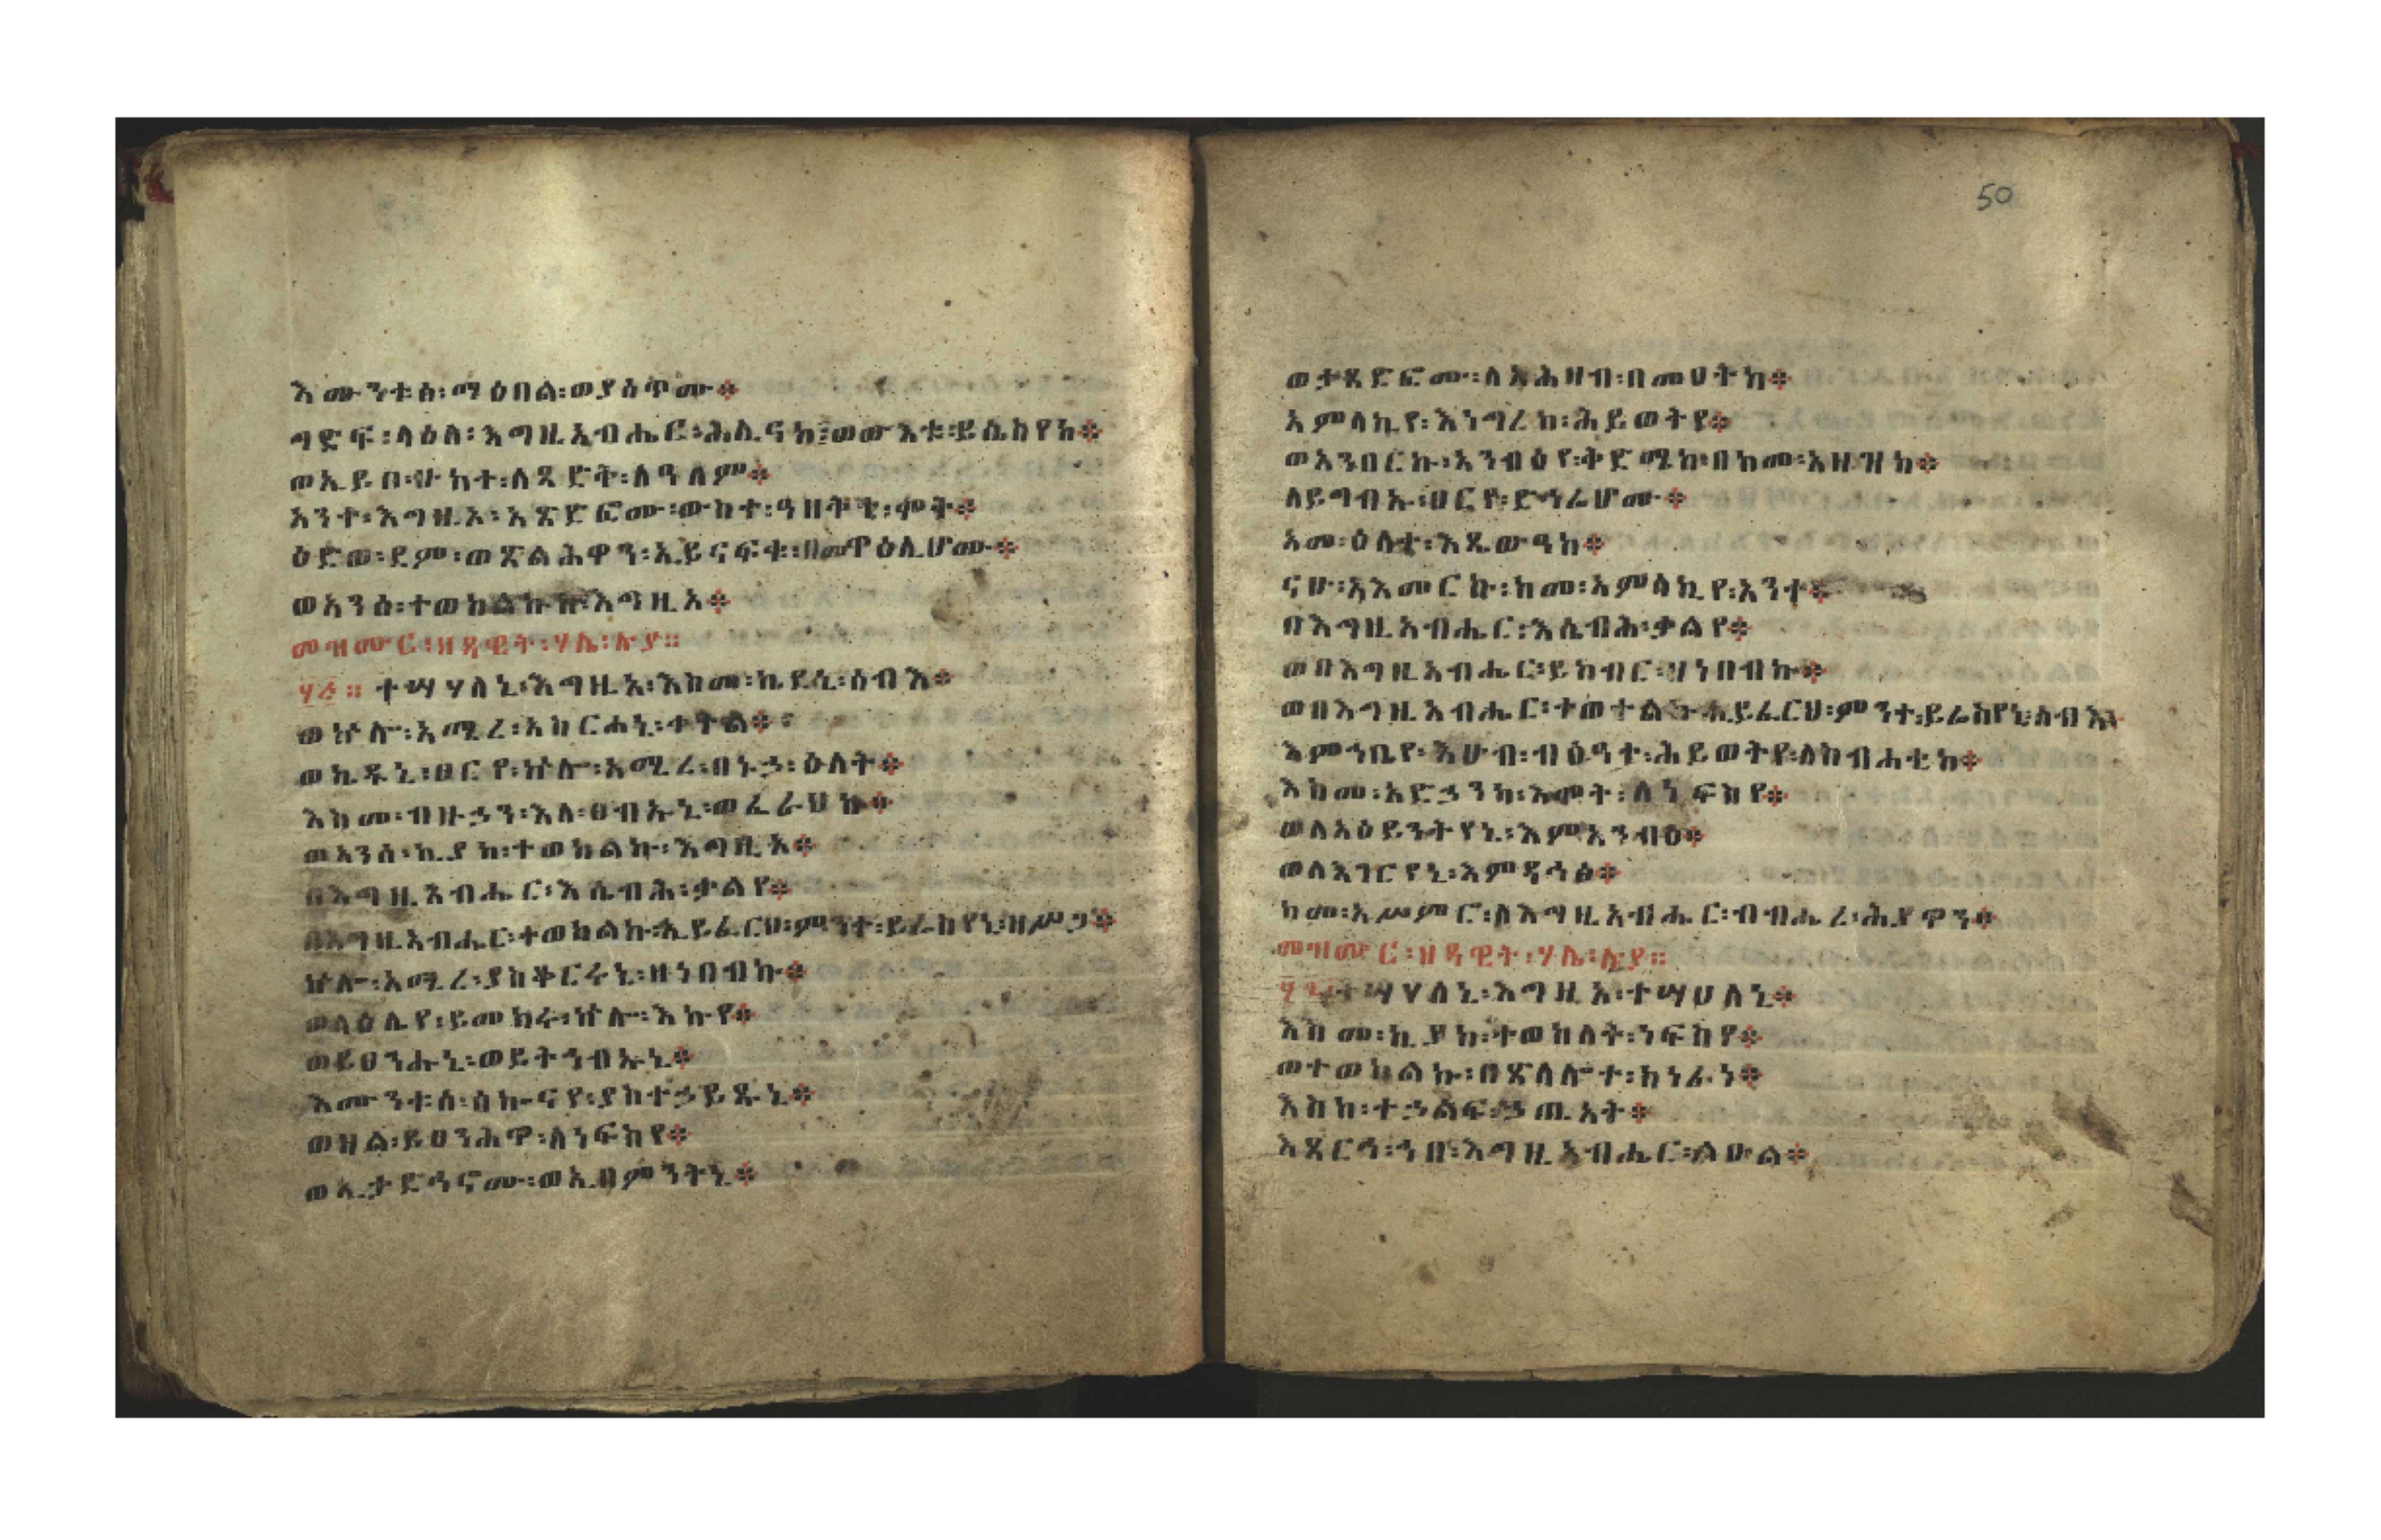 እሙንቱሰ፡ማዕበል፡ወያሰጥሙ።
ግድፍ፡ላዕለ፡እግዚአብሔር፡ሕሊናከ፤ወውእቱ፡ይሴስየከ።
ወኢይሁብ፡ሁከተ፡ለጻድቅ፡ለዓለም።
አንተ፡እግዚኦ፡አጽድፎሙ፡ውስተ፡ዓዘቅተ፡ሞት።
ዕደወ፡ደም፡ወጽልሕዋን፡ኢይናፍቁ፡በመዋዕሊሆሙ።
ወአንሰ፡ተወከልኩከ፡እግዚኦ።
መዝሙር፡ዘዳዊት፡ሃሌ፡ሉያ።
፶፭።ተሣሃለኒ፡እግዚኦ፡እስመ፡ኬደኒ፡ሰብእ።
ወኵሎ፡አሚረ፡አስርሐኒ፡ቀትል።
ወኬዱኒ፡ፀርየ፡ኵሎ፡አሚረ፡በኑኃ፡ዕለት።
እስመ፡ብዙኃን፡እለ፡ፀብኡኒ፡ወፈራህኩ።
ወአንሰ፡ኪያከ፡ተወከልኩ፡እግዚኦ።
በእግዚአብሔር፡እሴብሕ፡ቃልየ።
በእግዚአብሔር፡ተወከልኩ፡ኢይፈርህ፡ምንተ፡ይሬስየኒ፡ዘሥጋ።
ኵሎ፡አሚረ፡ያስቆርሩኒ፡ዘነበብኩ።
ወላዕሌየ፡ይመክሩ፡ኵሎ፡እኩየ።
ወይፀንሑኒ፡ወይትኀብኡኒ።
እሙንቱሰ፡ሰኰናየ፡ያስተኃይጹኒ።
ወዘልፈ፡ይፀንሕዋ፡ለነፍስየ።
ወኢታድኅኖሙ፡ወኢበምንትኒ።
ወታጸድፎሙ፡ለአሕዛብ፡በመዐትከ።
አምላኪየ፡እነግረከ፡ሕይወትየ።
ወአንበርኩ፡አንብዕየ፡ቅድሜከ፡በከመ፡አዘዝከ።
ለይግብኡ፡ፀርየ፡ድኅሬሆሙ።
አመ፡ዕለተ፡እጼውዓከ።
ናሁ፡አእመርኩ፡ከመ፡አምላኪየ፡አንተ።
በእግዚአብሔር፡እሴብሕ፡ቃልየ።
ወበእግዚአብሔር፡ይከብር፡ዘነበብኩ።
ወበእግዚአብሔር፡ተወከልኩ፡ኢይፈርህ፡ምንተ፡ይሬስየኒ፡ሰብእ።
እምኀቤየ፡እሁብ፡ብፅዓተ፡ሕይወትየ፡ለስብሐቲከ።
እስመ፡አድኃንካ፡እሞት፡ለነፍስየ።
ወለአዕይንትየኒ፡እምአንብዕ።
ወለእገርየኒ፡እምዳኅፅ።
ከመ፡አሥምሮ፡ለእግዚአብሔር፡በብሔረ፡ሕያዋን።
መዝሙር፡ዘዳዊት፡ሃሌ፡ሉያ።
ተሣሃለኒ፡እግዚኦ፡ተሣሀለኒ።
እስመ፡ኪያከ፡ተወከለት፡ነፍስየ።
ወተወከልኩ፡በጽላሎተ፡ክነፊከ።
እስከ፡ተኃልፍ፡ኃጢአት።
እጸርኅ፡ኀበ፡እግዚአብሔር፡ልዑል።
50